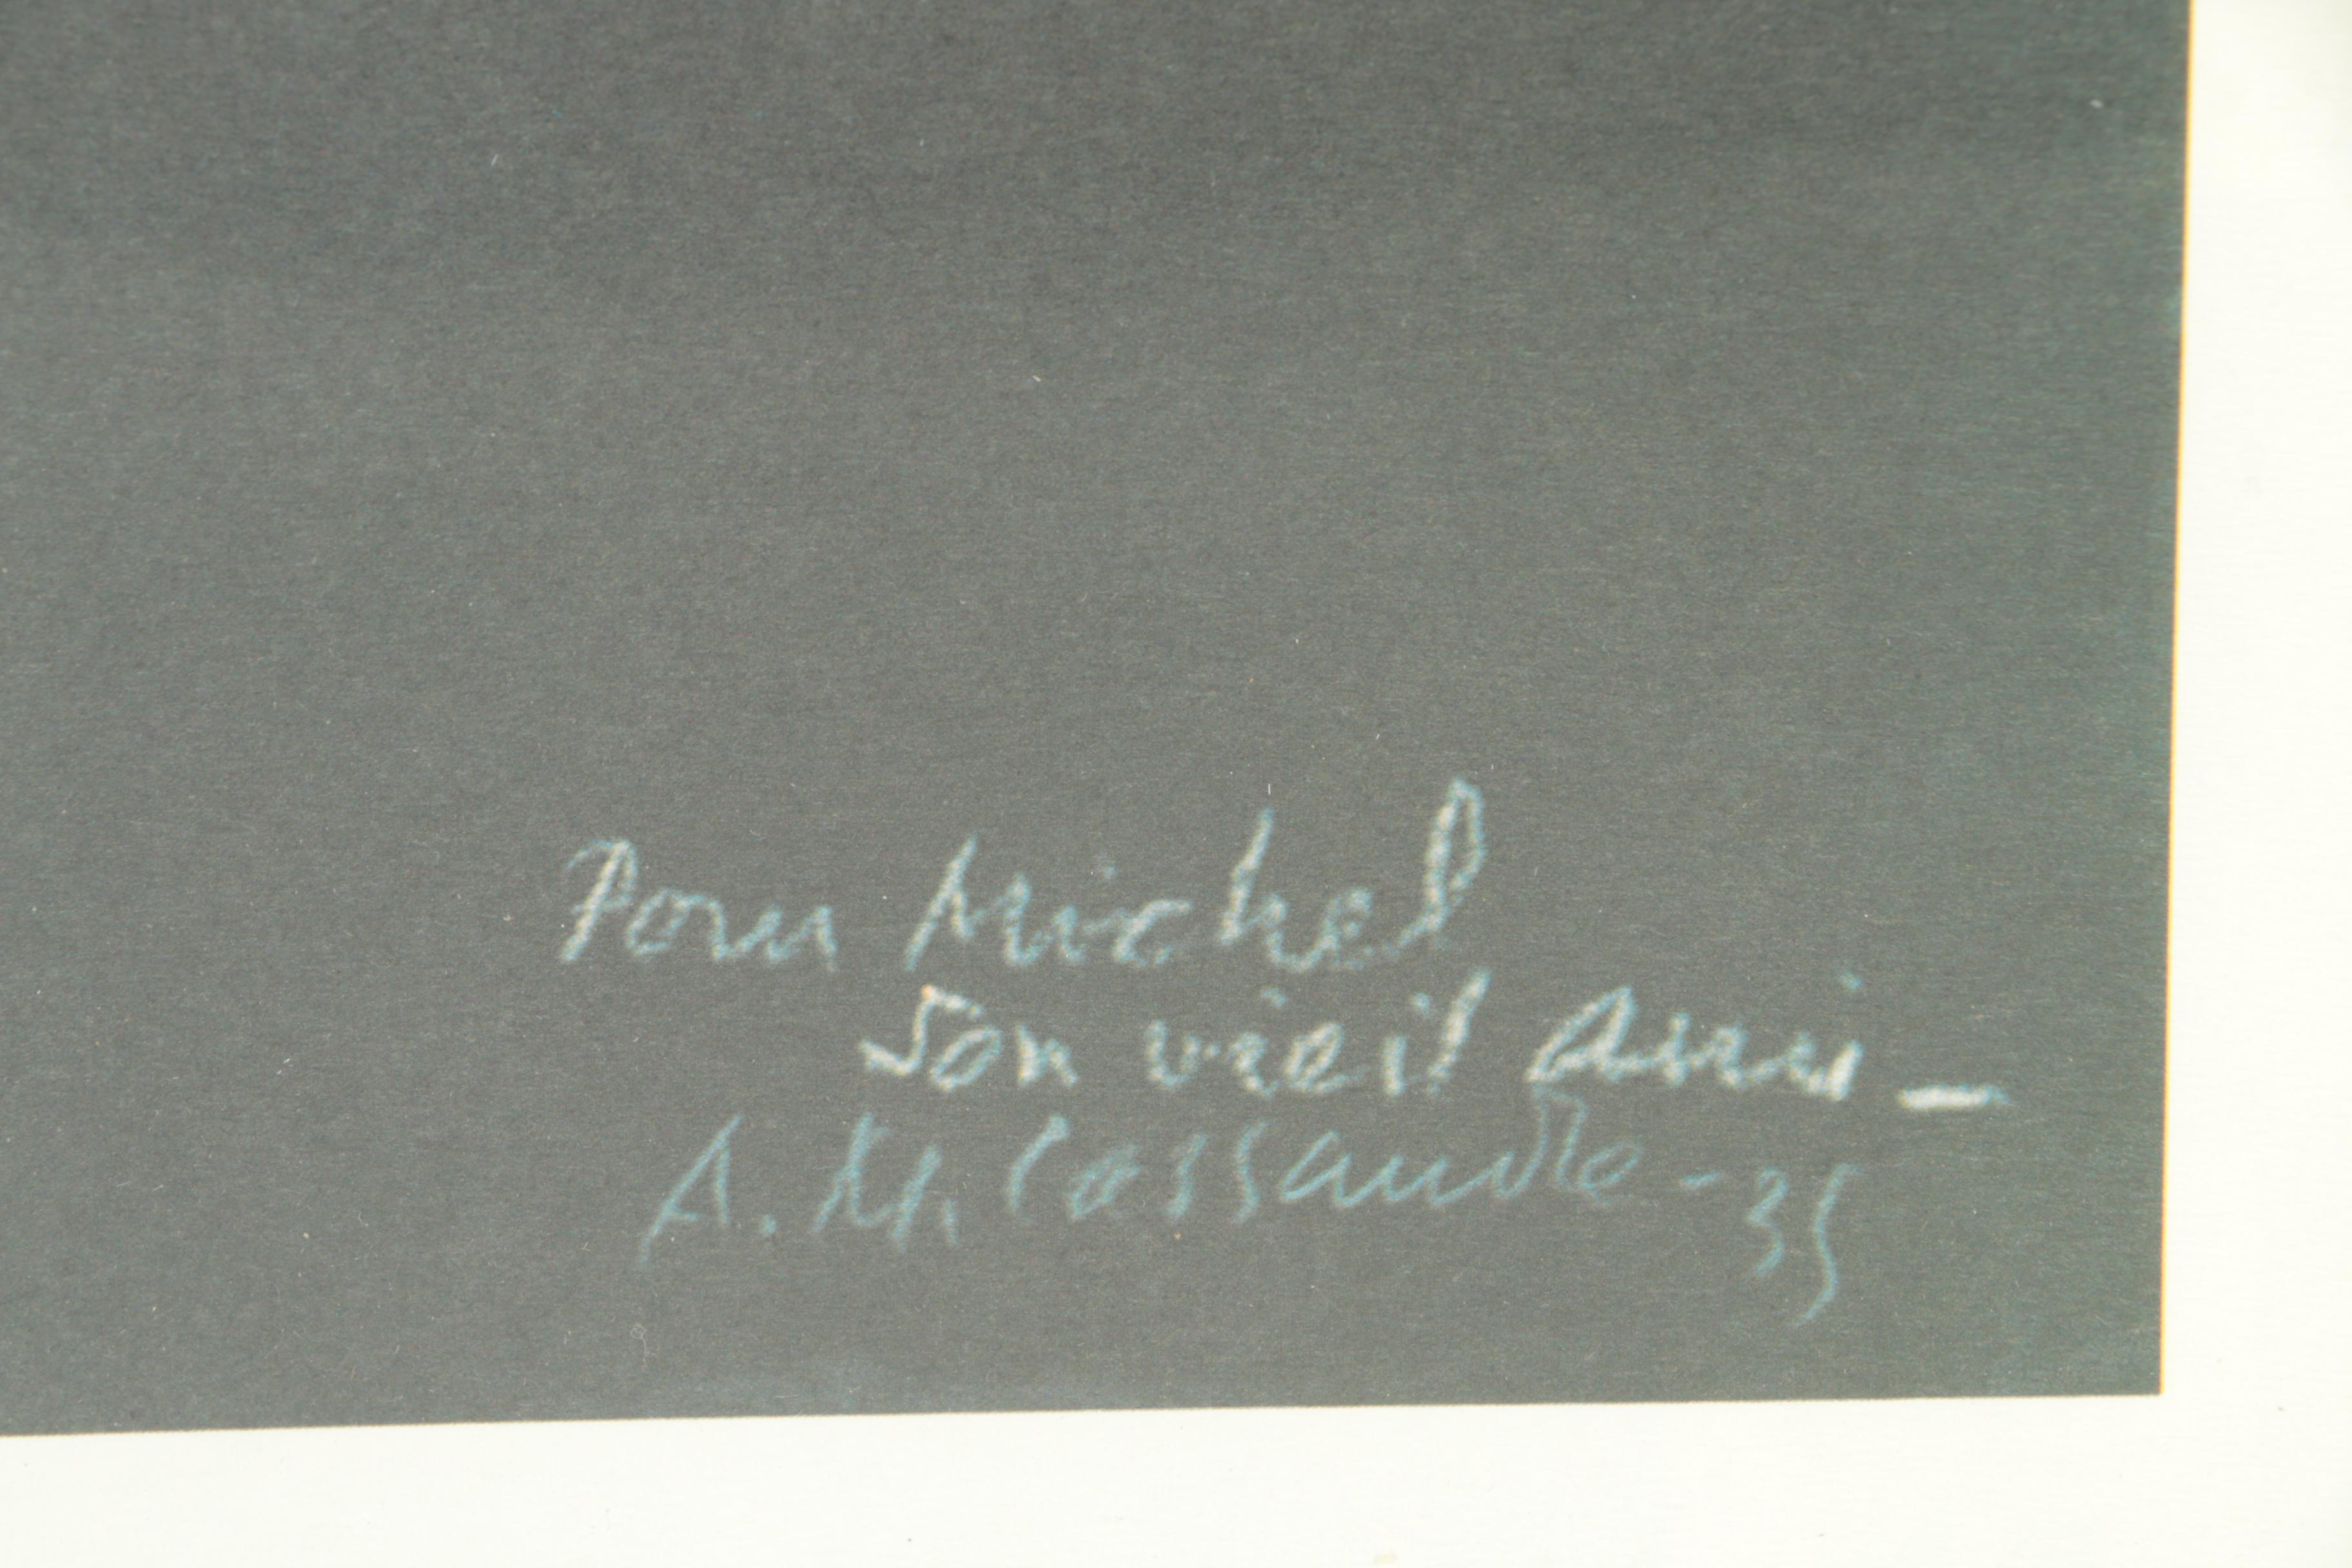 Pour Michel
Son vieil ami _
A. M. Cassandre - 35